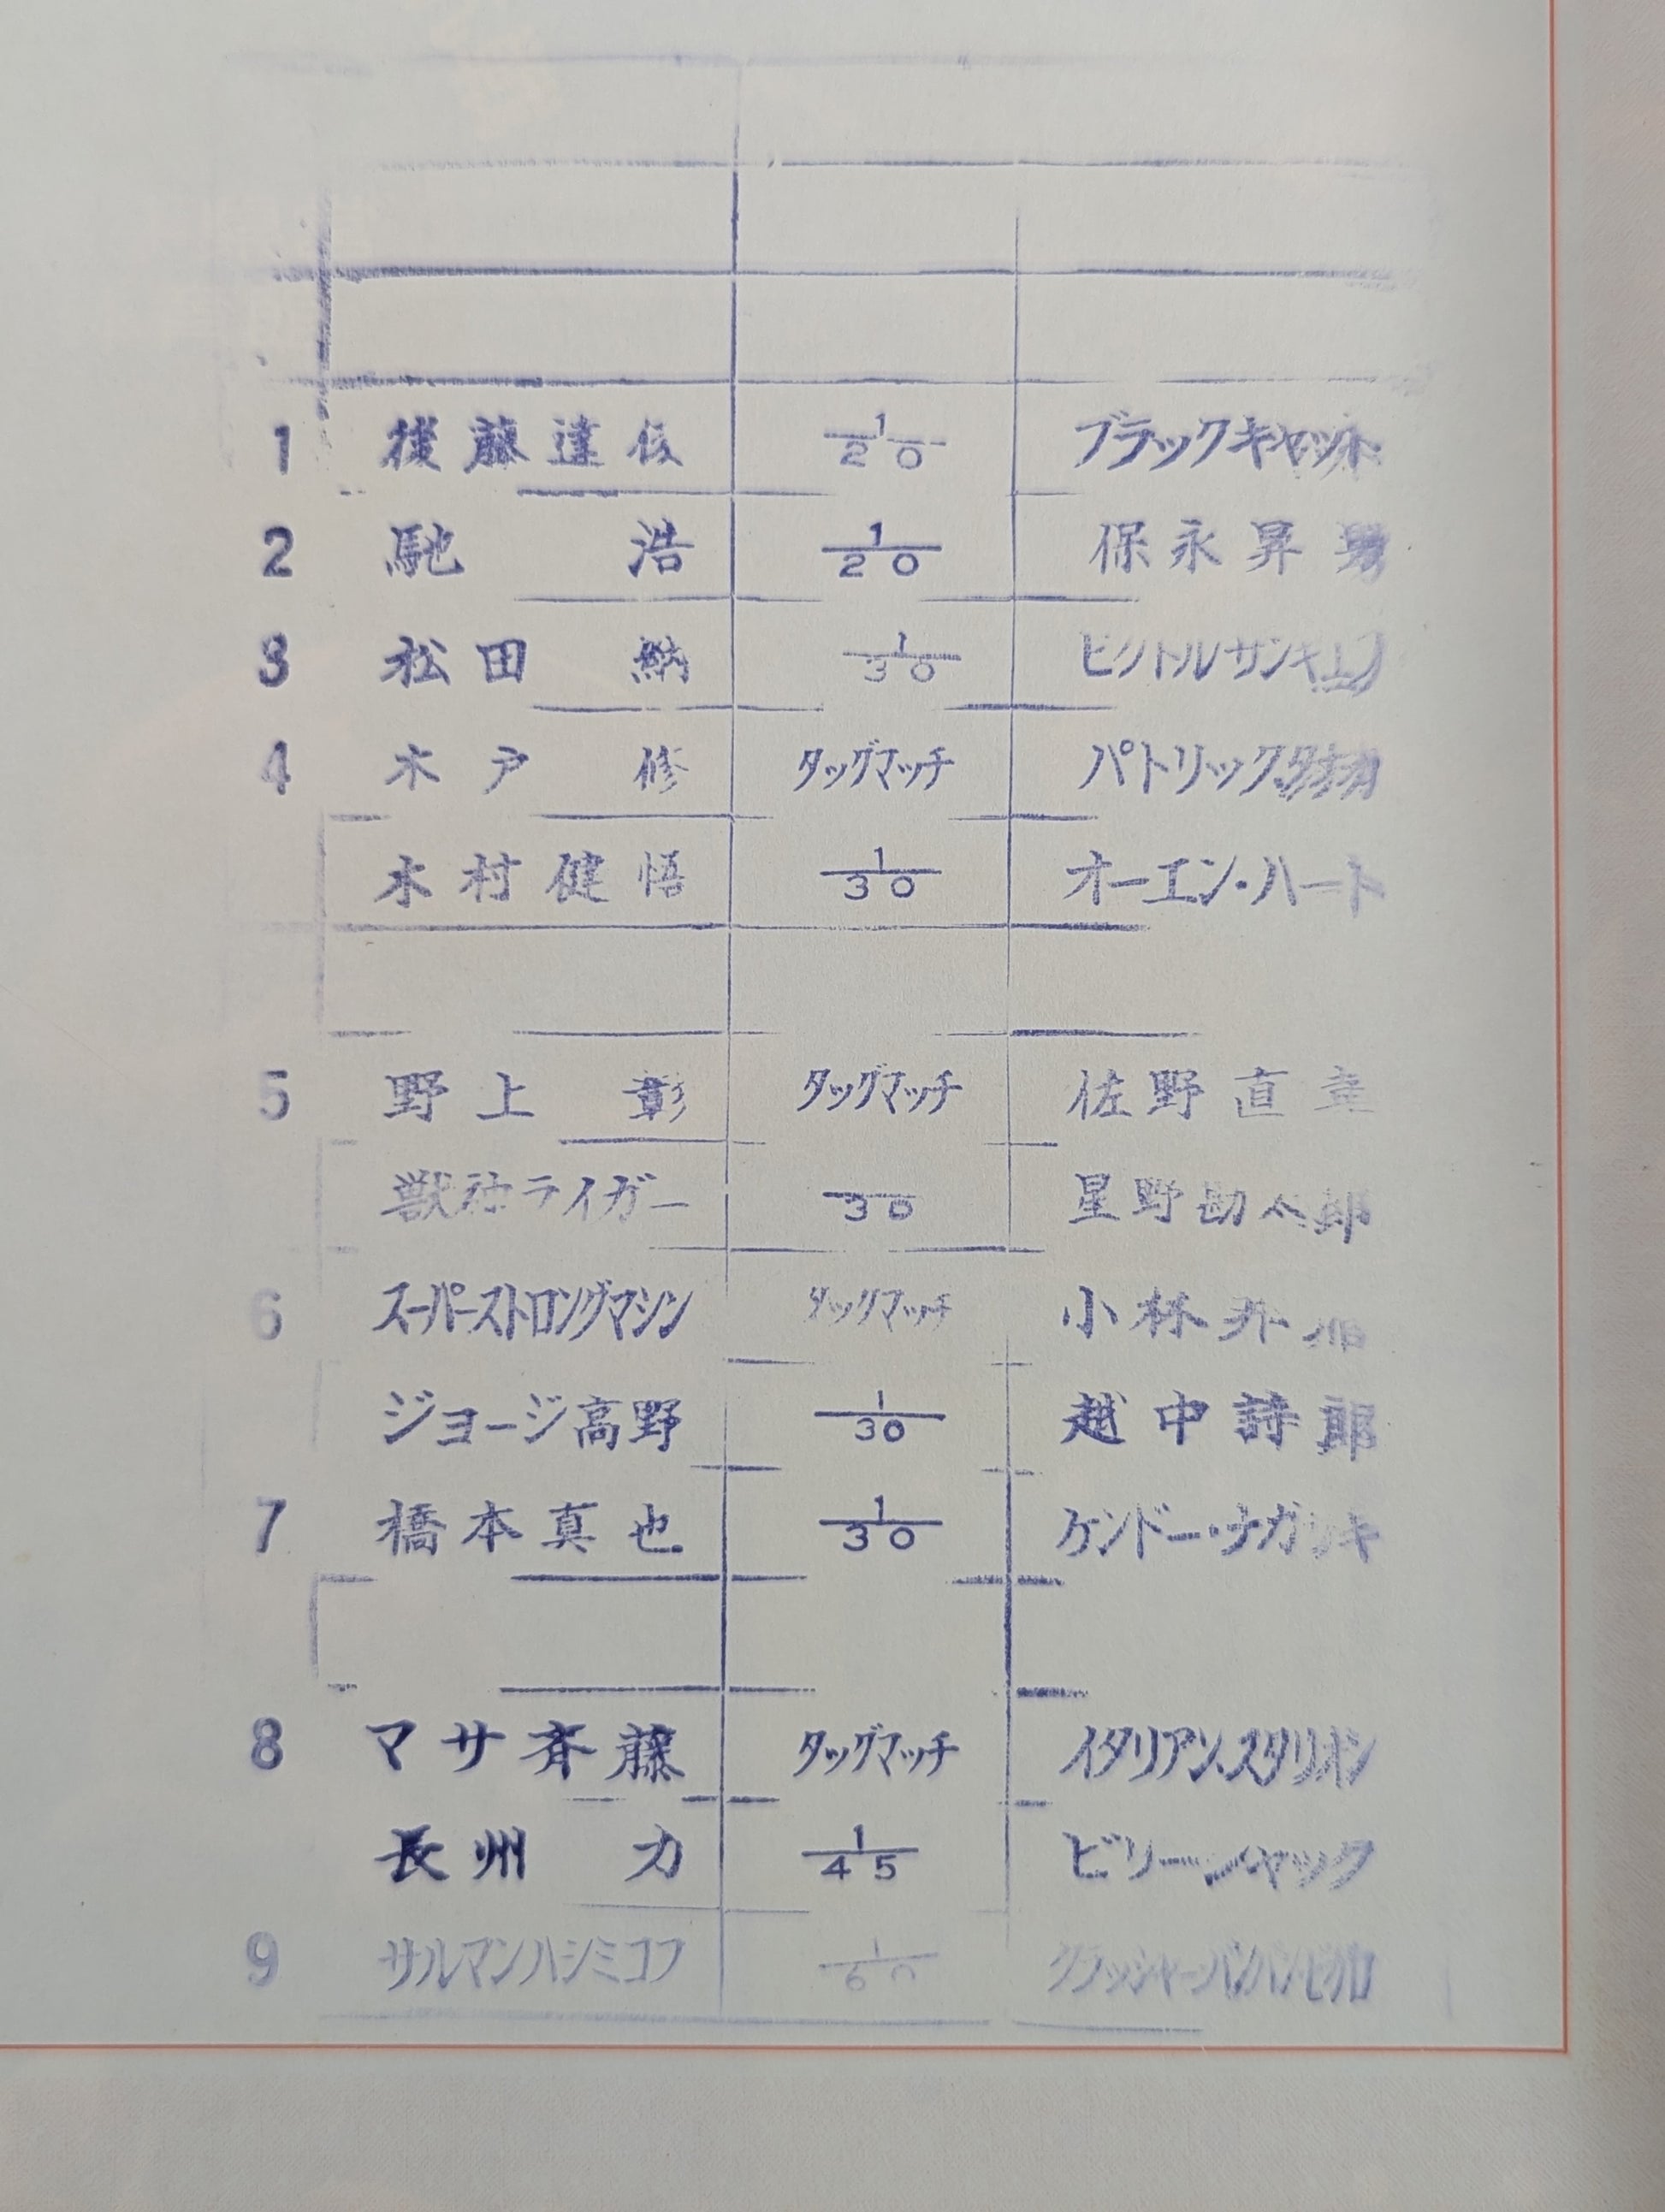 1 後藤達俊 1/20 ブラックキャット
2 馳 浩 1/20 保永昇男
3 松田 納 1/30 ビクトル
4 木戸 修 タッグマッチ パトリック
木村健悟 1/30 オーエン・ハート
5 野上 彰 タッグマッチ 佐野直
獣神ライガー 30 星野勘太郎
6 スーパーストロングマシン タッグマッチ 小林
ジョージ高野 1/30 越中詩郎
7 橋本真也 1/30 ケンドー・ナガサキ
8 マサ斉藤 タッグマッチ イタリアン.スタリオン
長州 力 1/45 ビリー
9 サルマンハシミコフ 1/60 クラッシャーバンバンビガロ